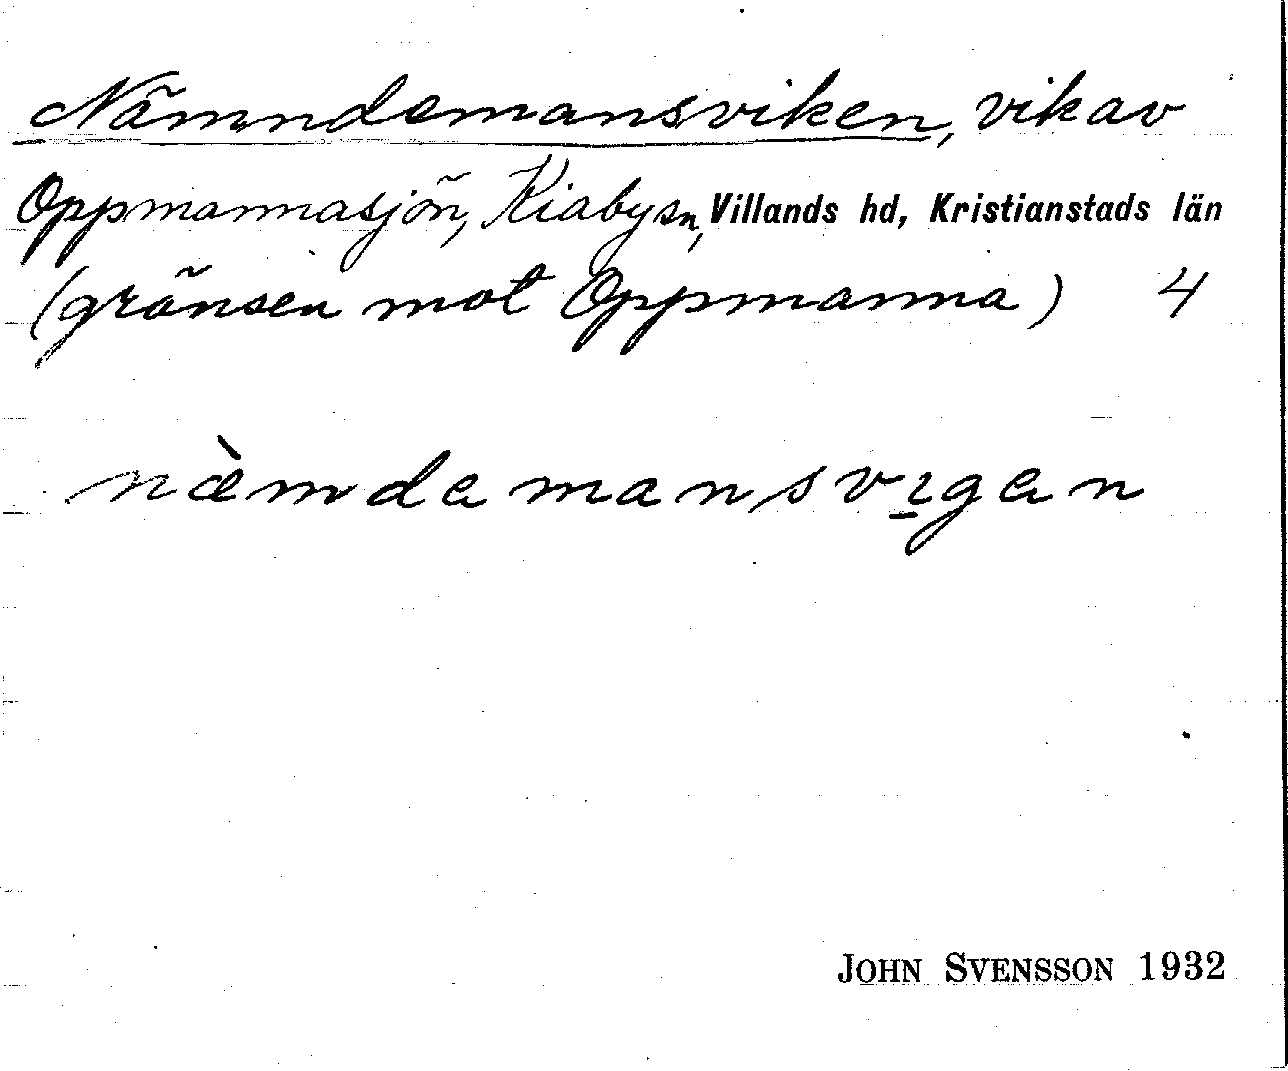 Nämndemansviken, vik av
Oppmannasjön, Kiaby sn, Villands hd, Kristianstads län
(gränsen mot Oppmanna) 4
næ̀mdamansvı̠gan
JOHN SVENSSON 1932